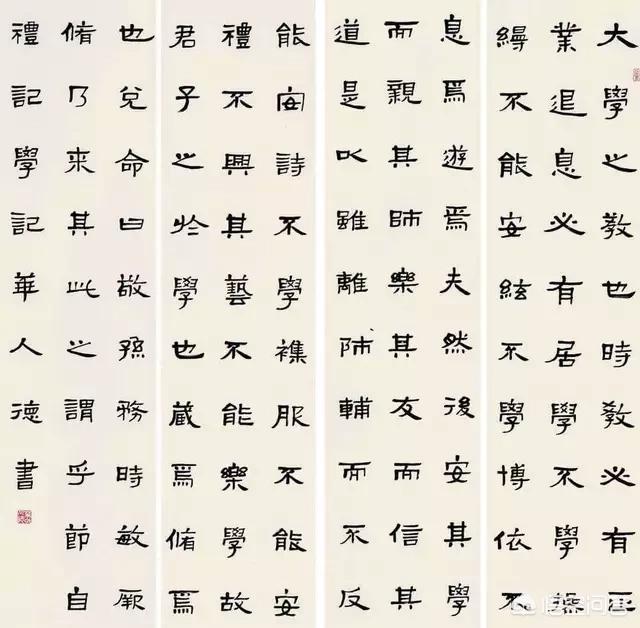 大學之教也時教必有正
業退息必有居學不學操
縵不能安絃不學博依不
息焉遊焉夫然後安其學
而親其師樂其友而信其
道是以雖離師輔而不反
能安詩不學襍服不能安
禮不興其藝不能樂學故
君子之於學也藏焉脩焉
也兌命曰敬孫務時敏厥
脩乃來其此之謂乎節自
禮記學記華人德書
悟空问答